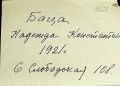 Баца
Надежда Константин
1921г
6 Слободская 108